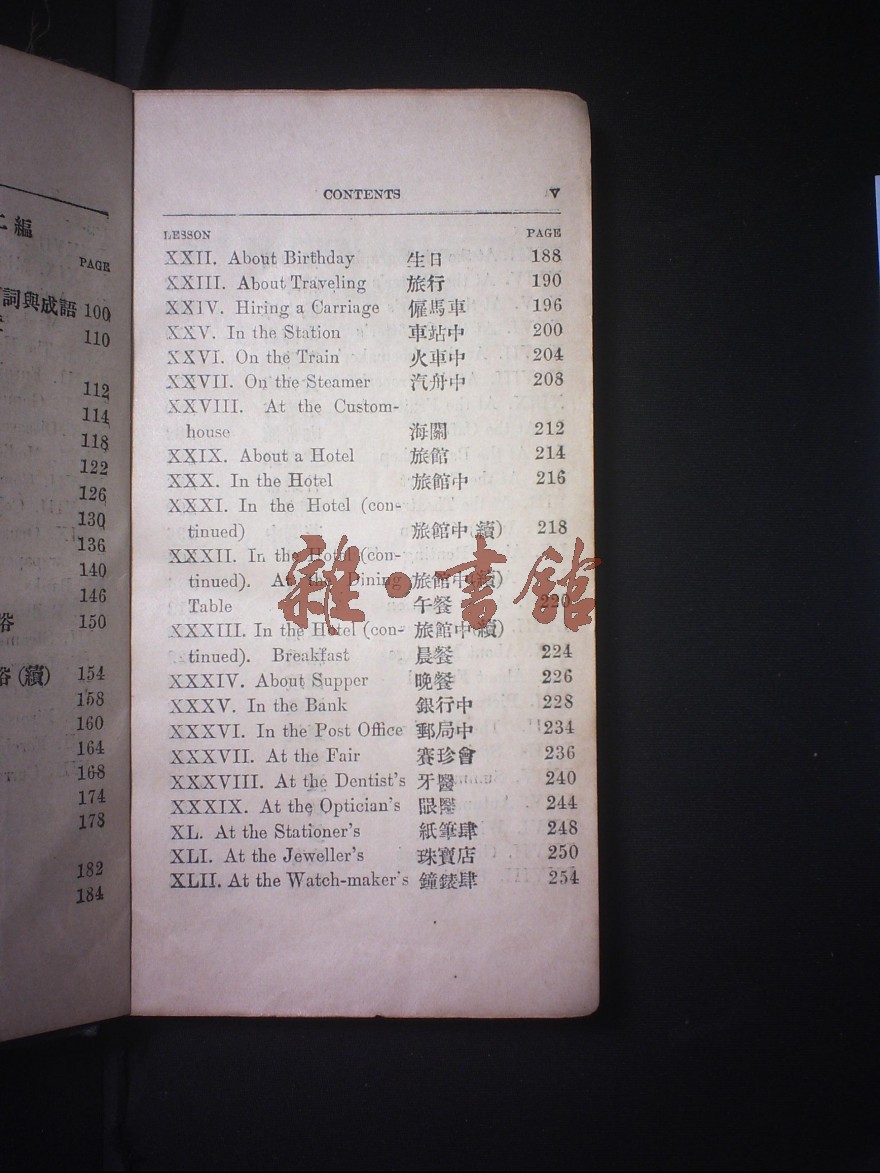 二編
PAGE
詞與成語 100
110
112
114
118
122
126
130
136
140
146
150
(續) 154
158
160
164
168
174
178
182
184
CONTENTS V
LESSON PAGE
XXII. About Birthday 生日 188
XXIII. About Traveling 旅行 190
XXIV. Hiring a Carriage 僱馬車 196
XXV. In the Station 車站中 200
XXVI. On the Train 火車中 204
XXVII. On the Steamer 汽舟中 208
XXVIII. At the Custom-
house 海關 212
XXIX. About a Hotel 旅館 214
XXX. In the Hotel 旅館中 216
XXXI. In the Hotel (con-
tinued) 旅館中(續) 218
XXXII. In the Hotel (con-
tinued). At the Dining 旅館中(續)
Table 午餐 220
XXXIII. In the Hotel (con- 旅館中(續)
tinued). Breakfast 晨餐 224
XXXIV. About Supper 晚餐 226
XXXV. In the Bank 銀行中 228
XXXVI. In the Post Office 郵局中 234
XXXVII. At the Fair 賽珍會 236
XXXVIII. At the Dentist's 牙醫 240
XXXIX. At the Optician's 眼醫 244
XL. At the Stationer's 紙筆肆 248
XLI. At the Jeweller's 珠寶店 250
XLII. At the Watch-maker's 鐘錶肆 254
雜·書館